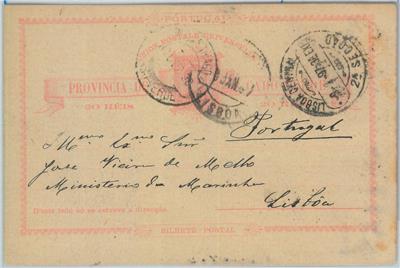 PORTUGAL
UNIÃO POSTAL UNIVERSAL
PROVINCIA DE CABO VERDE
20 RÉIS
LISBOA
LISBOA CENTRAL
2ª SECÇÃO
Portugal
Jose Vieira de Mello
Ministerio da Marinha
Lisbôa
D'este lado só se escreve a direcção.
BILHETE POSTAL